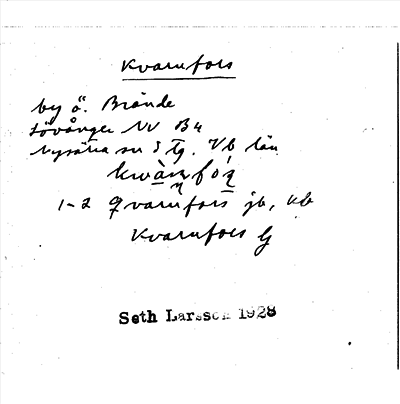 Kvarnfors
by ö. Brände
Lövånger NV Bu
Nysätra sn 3 tg. Vb län
kwàɳfóʂ
1-2 Qvarnfors jb, kb
Kvarnfors G
Seth Larsson 1928